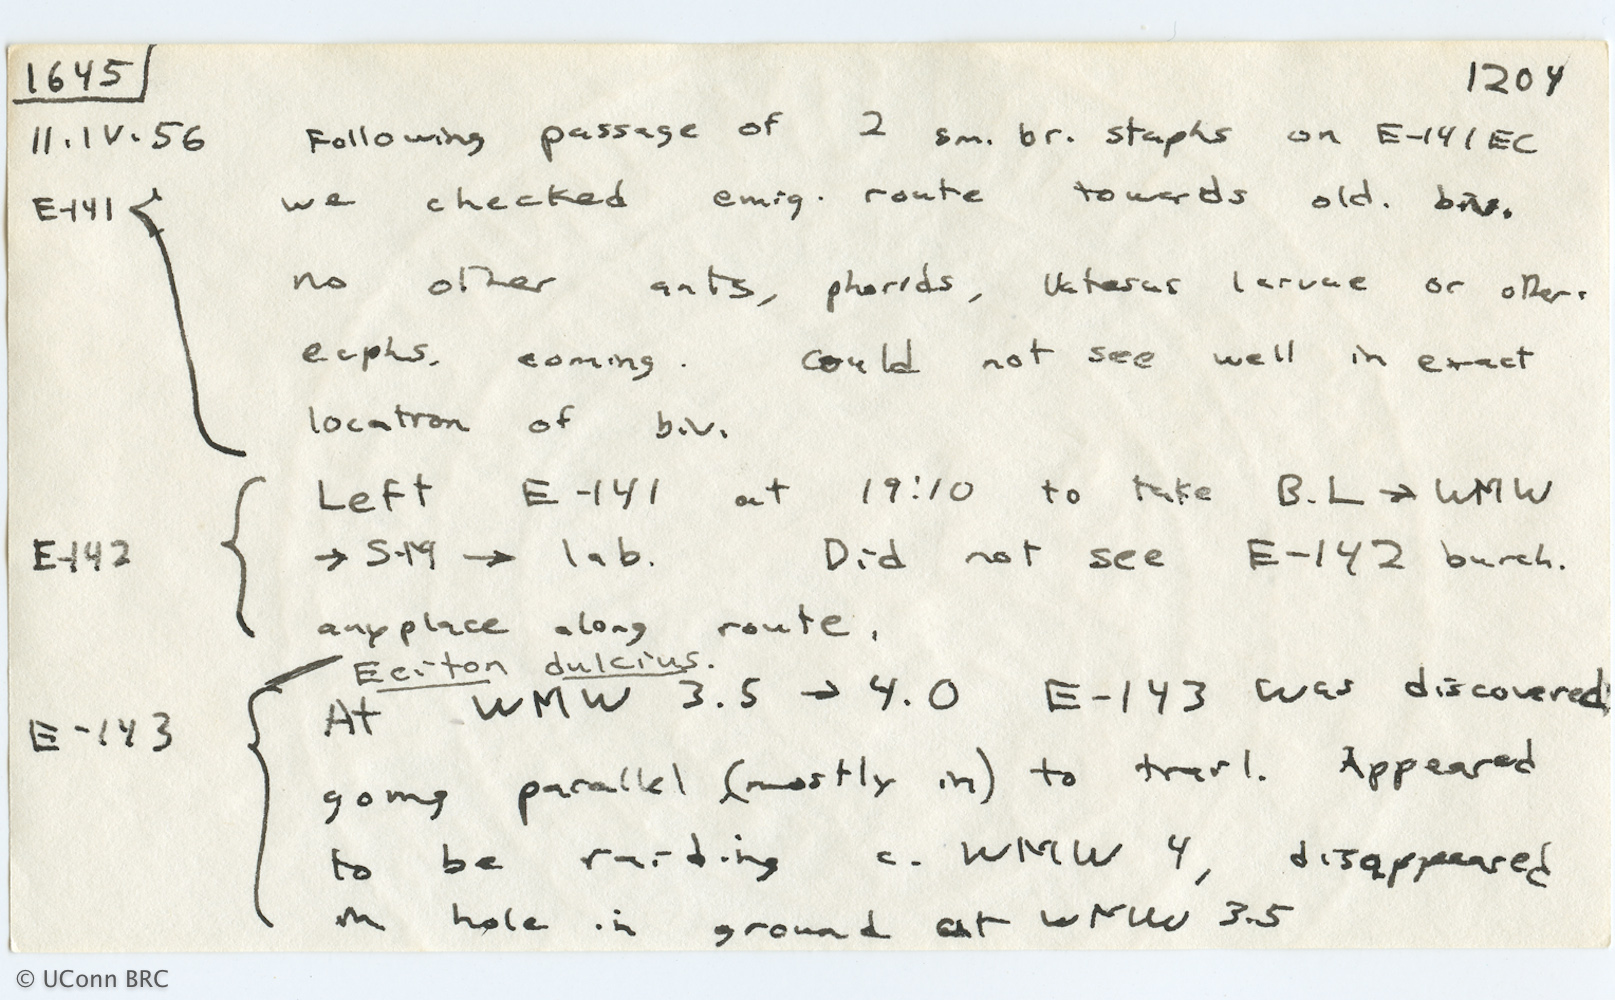 1645
1204
11.IV.56 Following passage of 2 sm. br. staphs on E-141 EC
E-141 we checked emig. route towards old. biv.
no other ants, phorids, Vatesus larvae or other
ecphs. coming. Could not see well in exact
location of biv.
Left E-141 at 19:10 to take B.L → WMW
E-142 → S-19 → lab. Did not see E-142 burch.
anyplace along route.
Eciton dulcius.
At WMW 3.5 → 4.0 E-143 was discovered
E-143
going parallel (mostly in) to trail. Appeared
to be raiding c. WMW 4, disappeared
in hole in ground at WMW 3.5
© UConn BRC